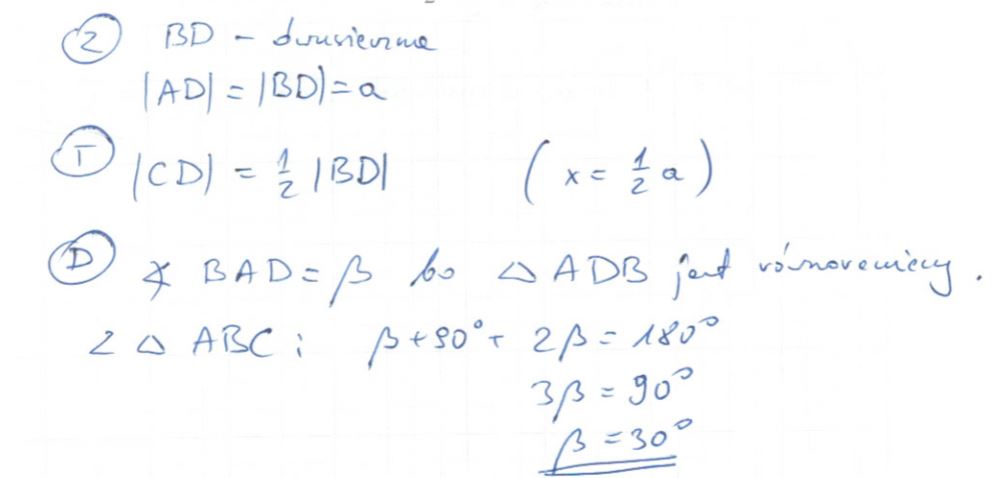 Z BD - dwusieczna
|AD| = |BD| = a
T |CD| = 1/2 |BD| (x = 1/2 a)
D ∢ BAD = β bo △ ADB jest równoramienny.
Z △ ABC: β + 90° + 2β = 180°
3β = 90°
β = 30°